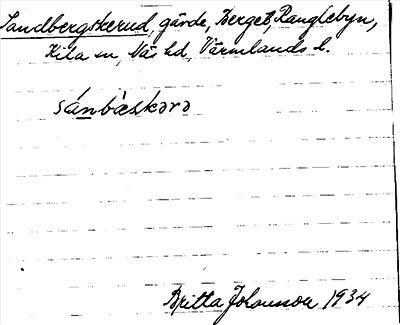 Sandbergskerud, gärde, Berget, Ranglebyn,
Kila sn, Näs hd, Värmlands l.
sánbæ̀skərə
Britta Johansson 1934